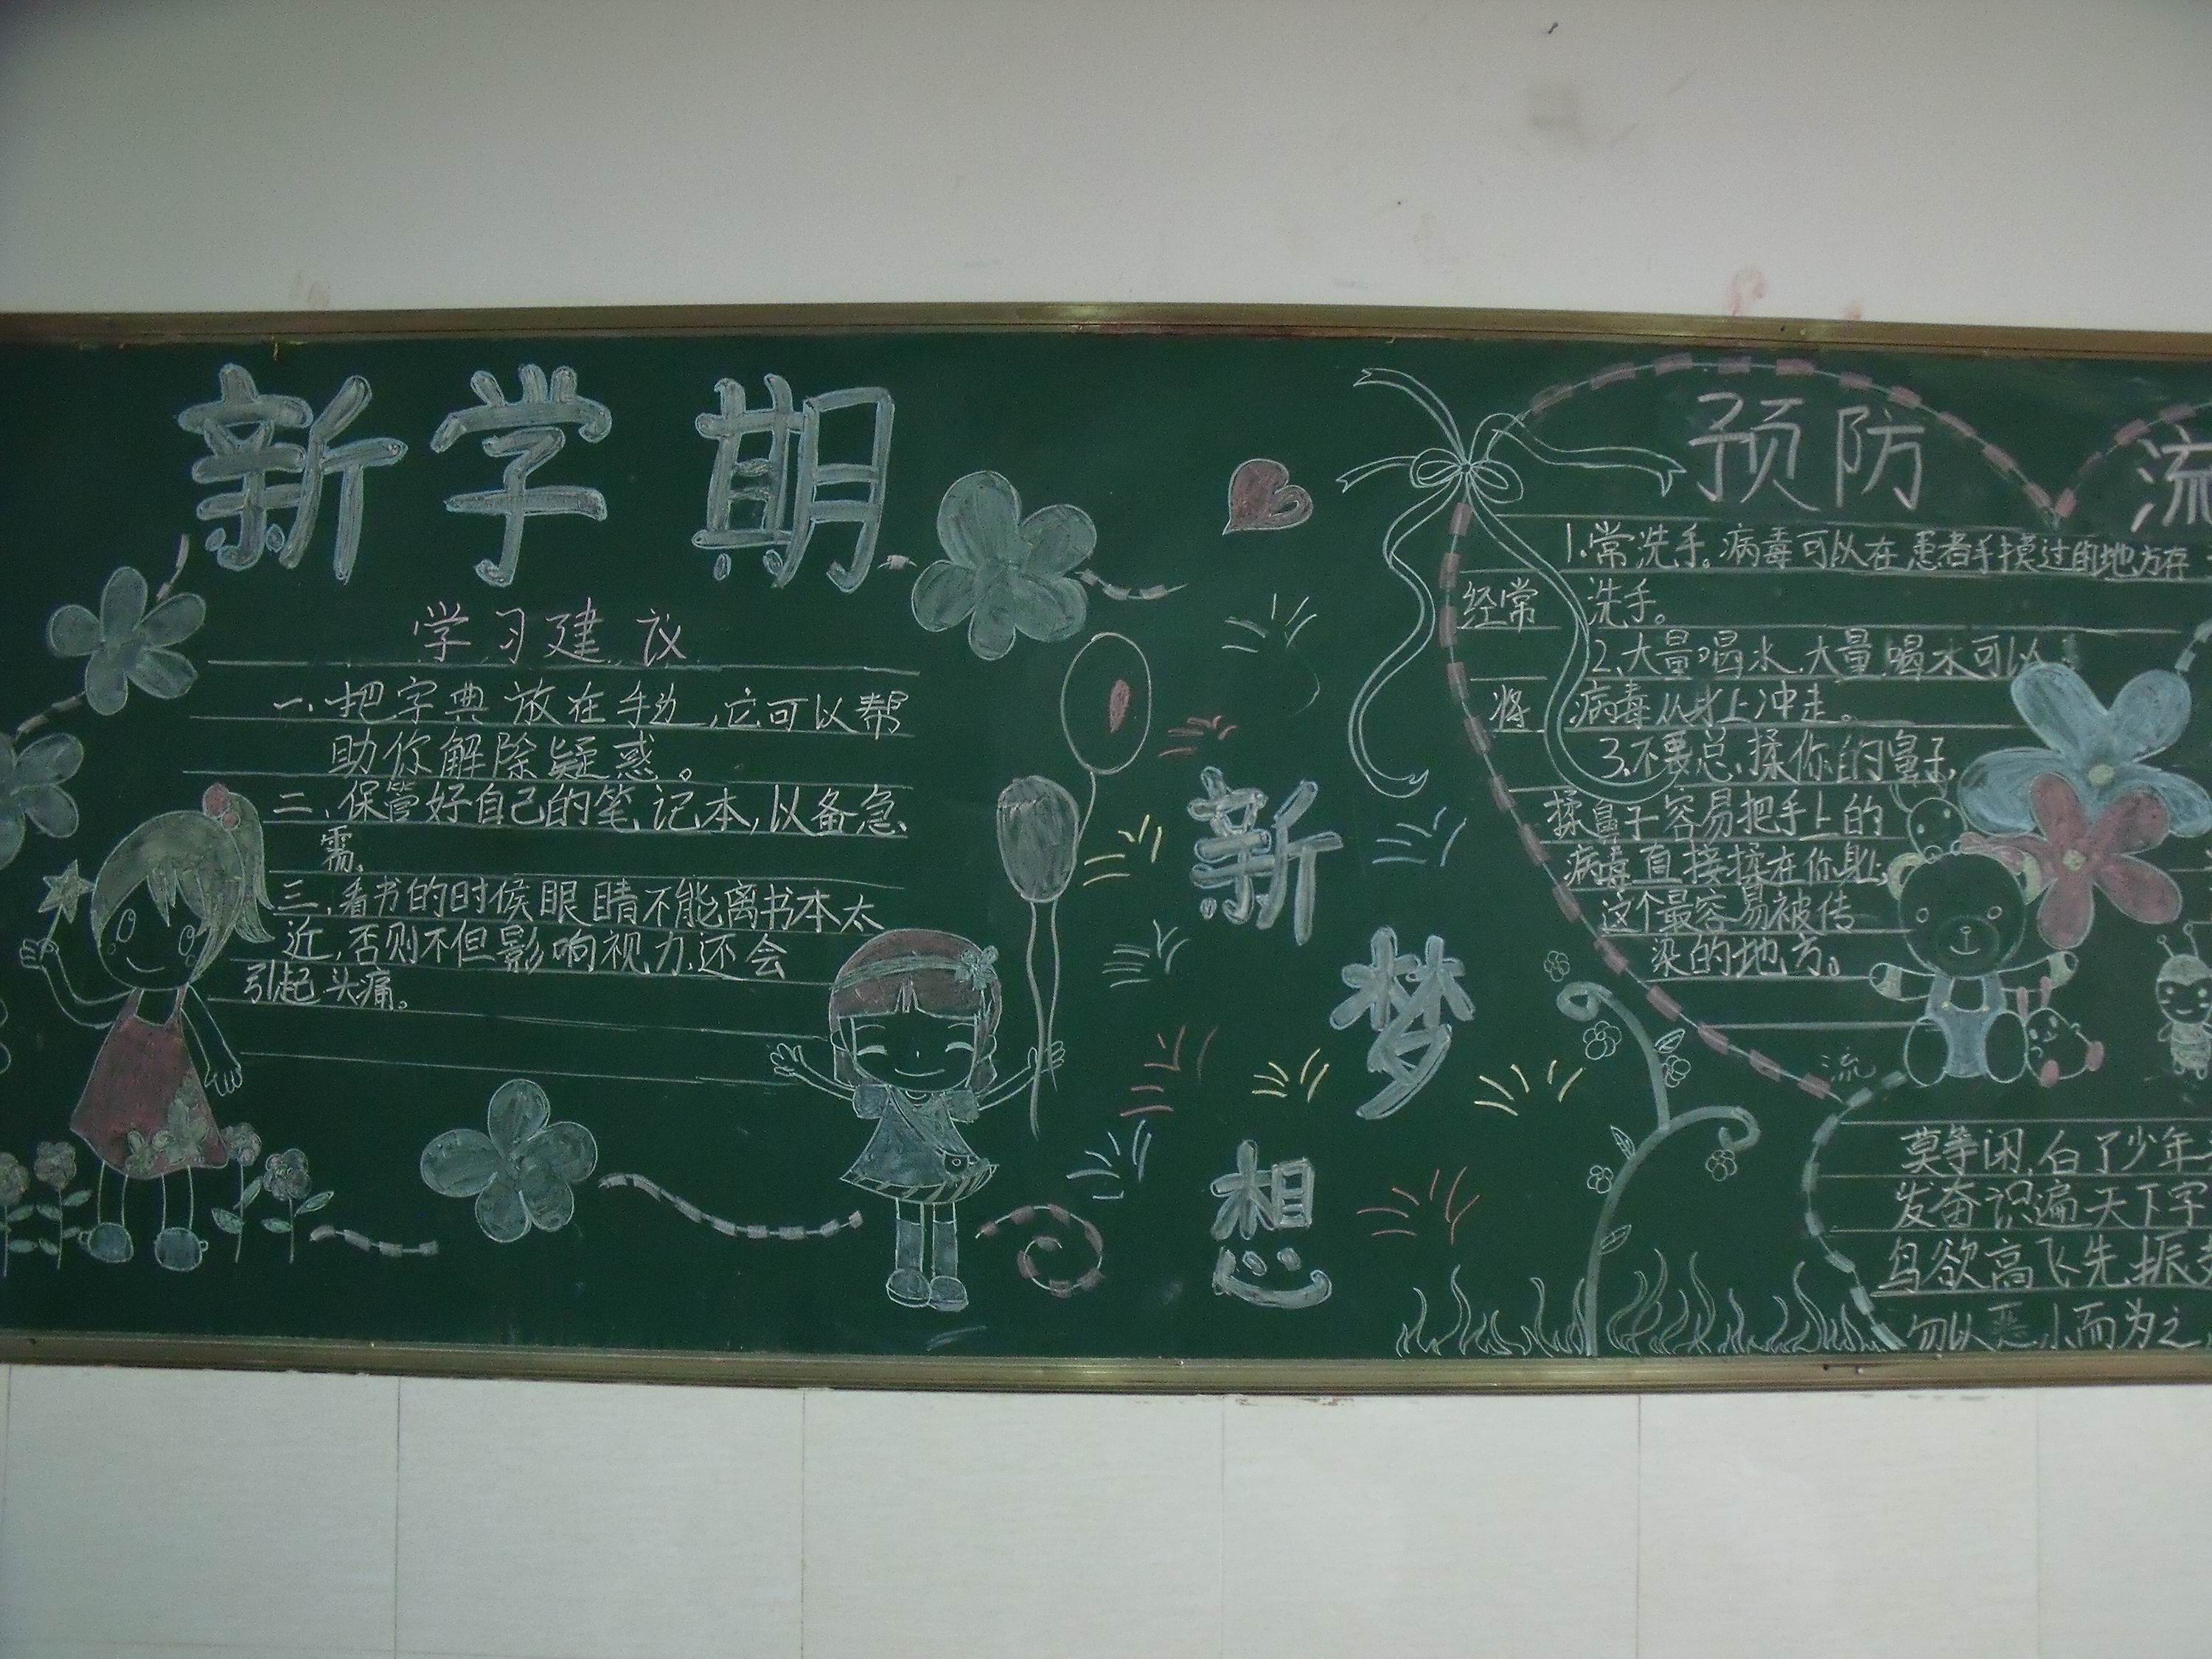 新学期
学习建议
一、把字典放在手边,它可以帮
助你解除疑惑。
二、保管好自己的笔记本,以备急
需。
三、看书的时候眼睛不能离书本太
近,否则不但影响视力,还会
引起头痛。
新
梦
想
预防流
1、常洗手。病毒可以在患者手摸过的地方存
经常洗手。
2、大量喝水,大量喝水可以
将病毒从身上冲走。
3、不要总揉你的鼻子,
揉鼻子容易把手上的
病毒直接揉在你身上,
这个最容易被传
染的地方。
流
莫等闲,白了少年
发奋识遍天下字
鸟欲高飞先振
勿以恶小而为之